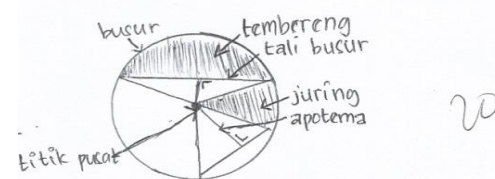 busur
tembereng
tali busur
juring
apotema
titik pusat
20